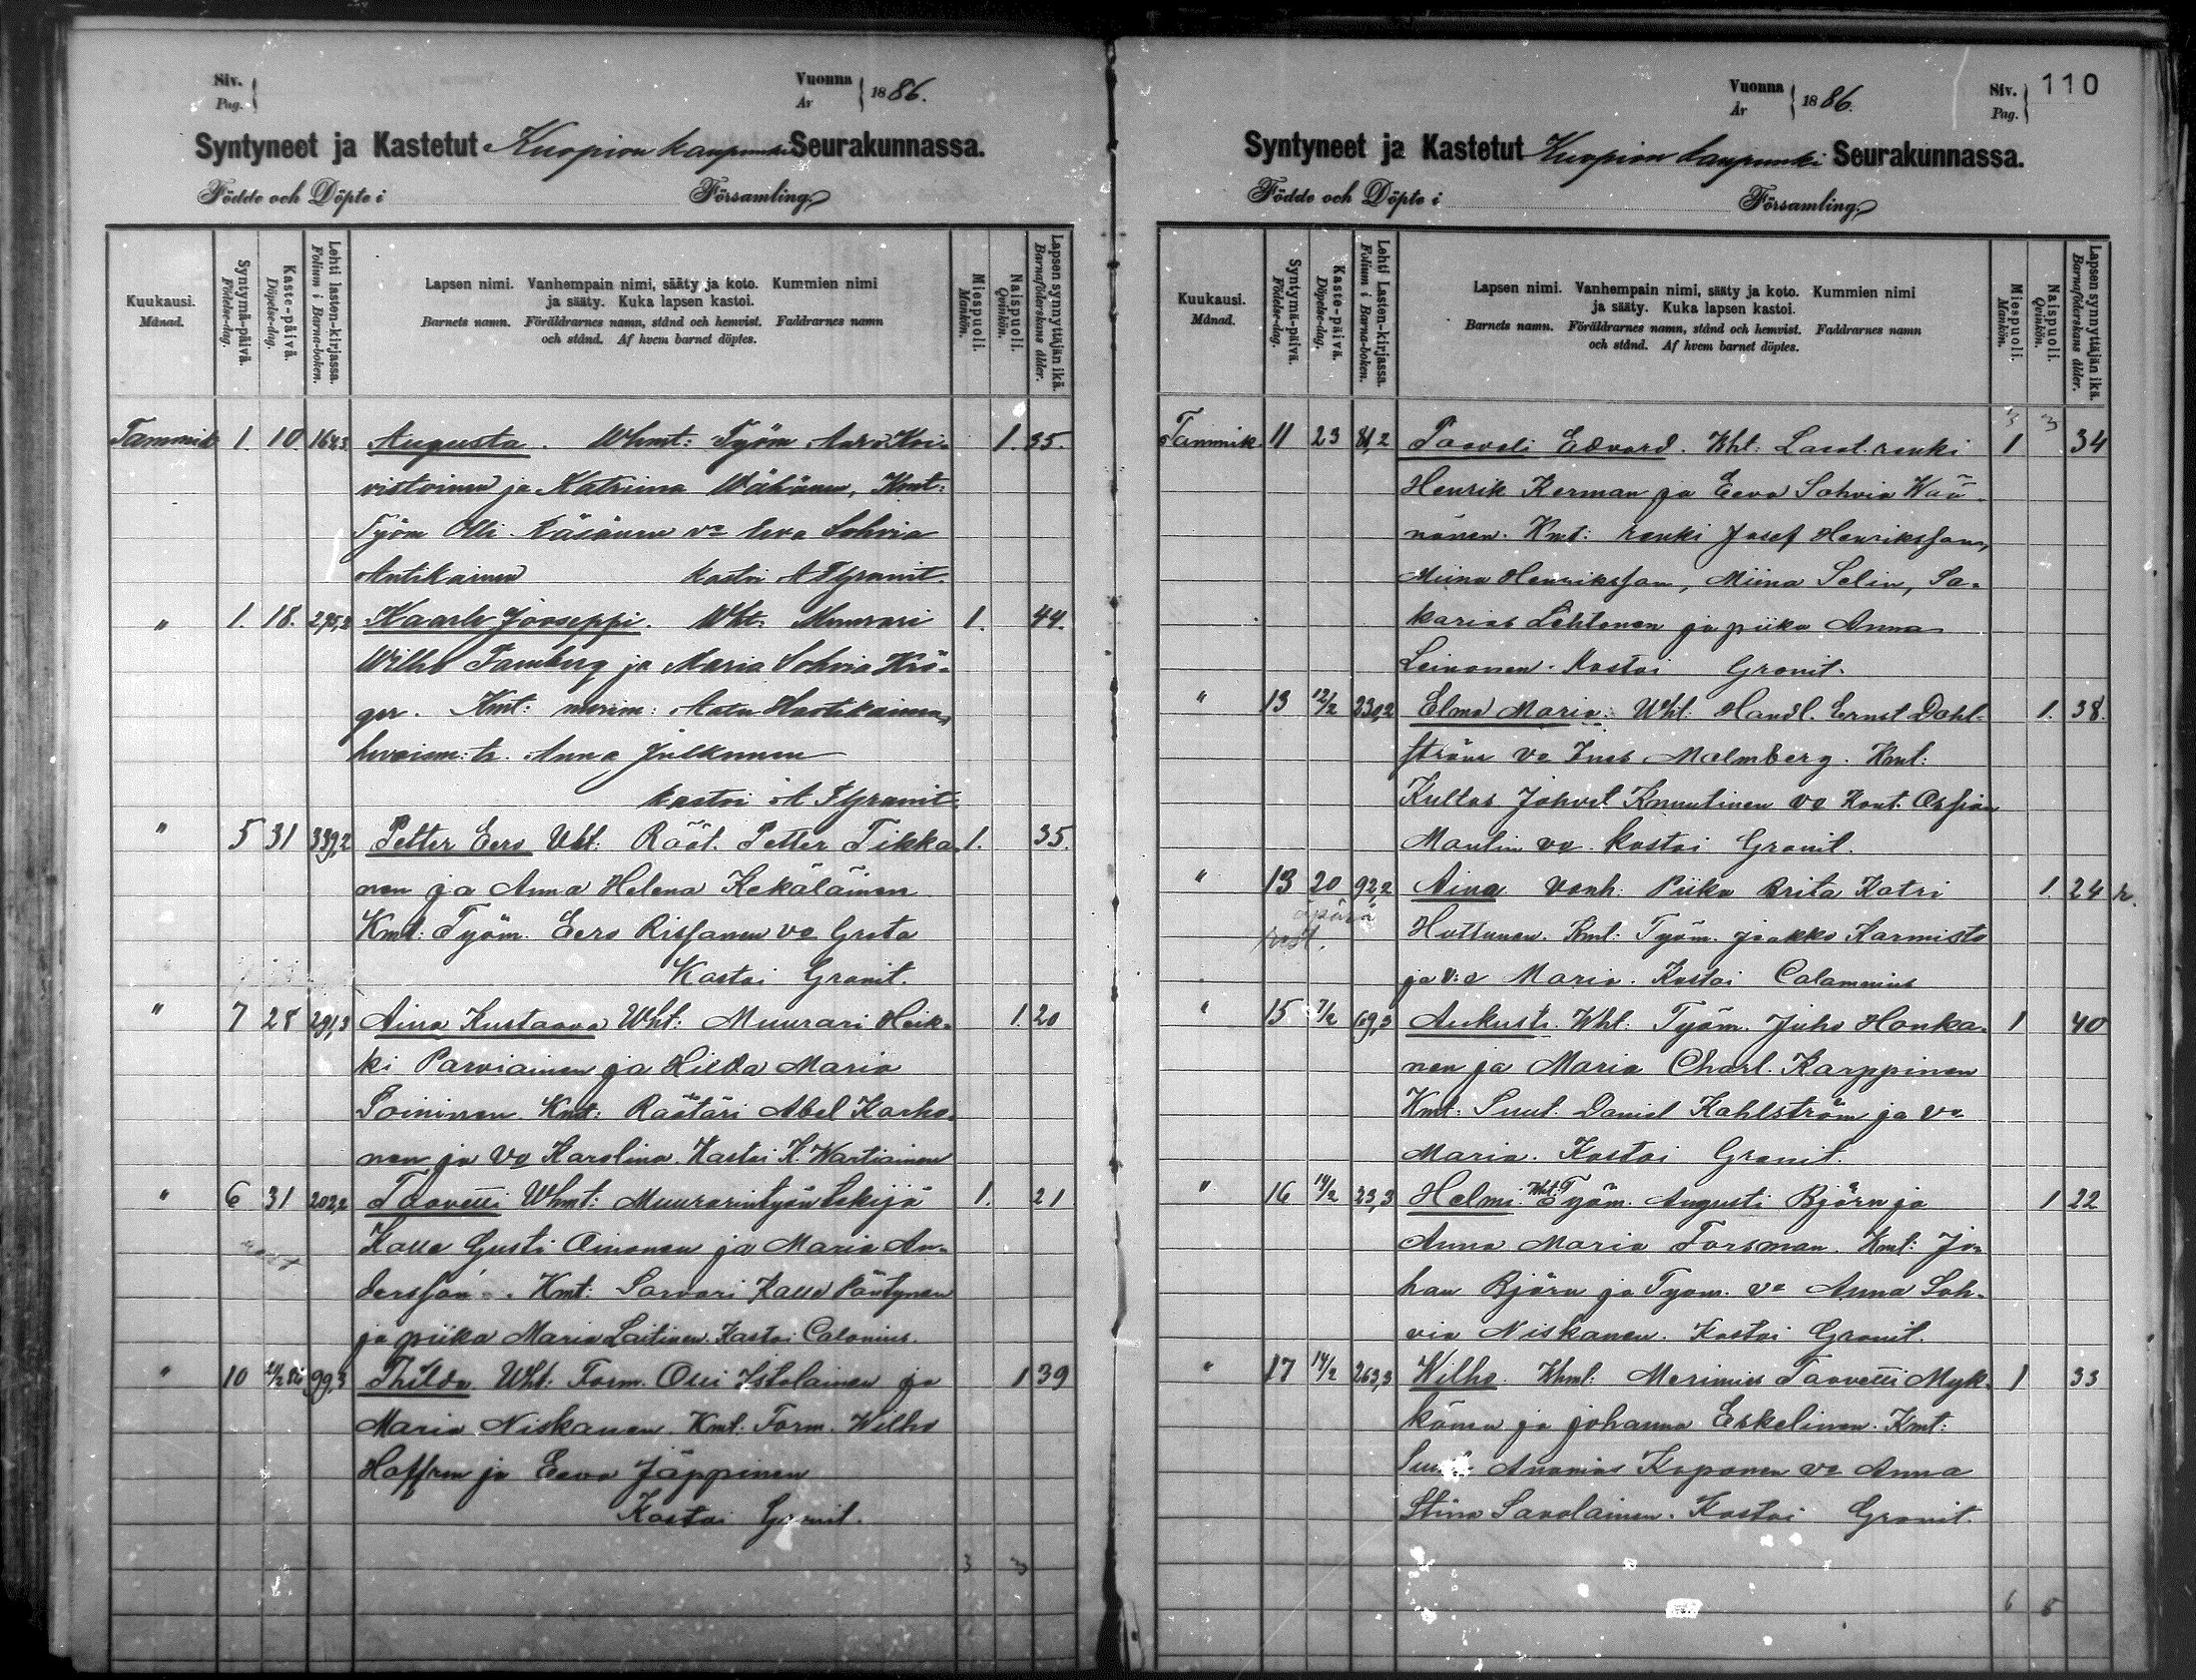 Siv.
Pag.
Vuonna
År
1886.
Syntyneet ja Kastetut Kuopion kaupunki Seurakunnassa.
Födde och Döpte i Församling
Kuukausi.
Månad.
Syntymä-päivä.
Födelse-dag.
Kaste-päivä.
Döpelse-dag.
Lehti lasten-kirjassa.
Folium i Barna-boken.
Lapsen nimi. Vanhempain nimi, sääty ja koto. Kummien nimi
ja sääty. Kuka lapsen kastoi.
Barnets namn. Föräldrarnes namn, stånd och hemvist. Faddrarnes namn
och stånd. Af hvem barnet döptes.
Miespuoli.
Mankön.
Naispuoli.
Qvinkön.
Lapsen synnyttäjän ikä.
Barnaföderskans ålder.
Tammik 1. 10. 164,3 Augusta. Whmt: Työm Aaro Koi- 1. 35.
vistoinen ja Katriina Wähänen, Kmt:
Työm Olli Räsänen va Eeva Sohvia
Antikainen kastoi A F Granit.
" 1. 18. 295,2 Kaarle Jooseppi. Wht. Muurari 1. 44.
Wilho Tamberg ja Maria Sohvia Krö-
ger. Kmt: merim: Aatu Hartikainen,
Anna Julkunen
kastoi A F Granit.
" 5 31 339,2 Petter Eero Vht: Räät. Petter Tikka- 1. 35.
nen ja Anna Helena Kekäläinen
Kmt: Työm. Eero Rissanen va Greta
Kastoi Granit.
" 7 28 291,3 Aina Kustaava Wht: Muurari Heik- 1. 20
ki Parviainen ja Hilda Maria
Soininen. Kmt: Räätäri Abel Korho-
nen ja va Karolina. Kastoi K. Wartiainen
" 6 31 202,2 Taavetti Whmt: Muurarintyön tekijä 1. 21
Kalle Gusti Oinonen ja Maria An-
dersson. Kmt: Sorvari Kalle Päntynen
ja piika Maria Laitinen. Kastoi Calonius.
" 10 99,3 Thilda Wht: Form. Olli Istolainen ja 1 39
Maria Niskanen. Kmt: Form. Wilho
Hoffren ja Eeva Jäppinen
Kastoi Granit.
3 3
Vuonna
År
1886.
Siv.
Pag.
110
Syntyneet ja Kastetut Kuopion kaupunki Seurakunnassa.
Födde och Döpte i Församling
Kuukausi.
Månad.
Syntymä-päivä.
Födelse-dag.
Kaste-päivä.
Döpelse-dag.
Lehti Lasten-kirjassa.
Folium i Barna-boken.
Lapsen nimi. Vanhempain nimi, sääty ja koto. Kummien nimi
ja sääty. Kuka lapsen kastoi.
Barnets namn. Föräldrarnes namn, stånd och hemvist. Faddrarnes namn
och stånd. Af hvem barnet döptes.
Miespuoli.
Mankön.
Naispuoli.
Qvinkön.
Lapsen synnyttäjän ikä.
Barnaföderskans ålder.
3 3
Tammik. 11 23 81,2 Paavali Edvard. Wht: renki 1 34
Henrik Kerman ja Eeva Sohvia Wää-
nänen. Kmt: renki Josef Henriksson,
Miina Henriksson, Miina Selin, Sa-
karias Lehtonen ja piika Anna
Leinonen. Kastoi Granit.
" 13 12/2 230,2 Elma Maria. Wht: Handl. Ernst Dahl- 1. 38.
ström va Ines Malmberg. Kmt:
Kultas Johvet Knuutinen va Kont. Ossian
Maulin va. kastoi Granit.
" 13 20 92,2 Aina Vanh: Piika Brita Katri 1. 24 r.
äpärä
Huttunen. Kmt: Työm. Jaakko Karmisto
ja v:o Maria. Kastoi Calamnius
" 15 7/2 69,3 Aukusti. Wht: Työm. Juho Honka- 1 40
nen ja Maria Charl. Karppinen
Kmt: Suut. Daniel Kahlström ja va
Maria. Kastoi Granit.
" 16 14/2 23,3 Helmi. Wht: Työm. Augusti Björn ja 1 22
Anna Maria Forsman. Kmt: Jo-
han Björn ja Tyom. va Anna Soh-
via Niskanen. Kastoi Granit.
" 17 14/2 263,3 Wilho. Whmt: Merimies Taavetti Myk- 1 33
känen ja Johanna Eskelinen. Kmt:
Ananias Koponen va Anna
Stina Savolainen. Kastoi Granit.
6